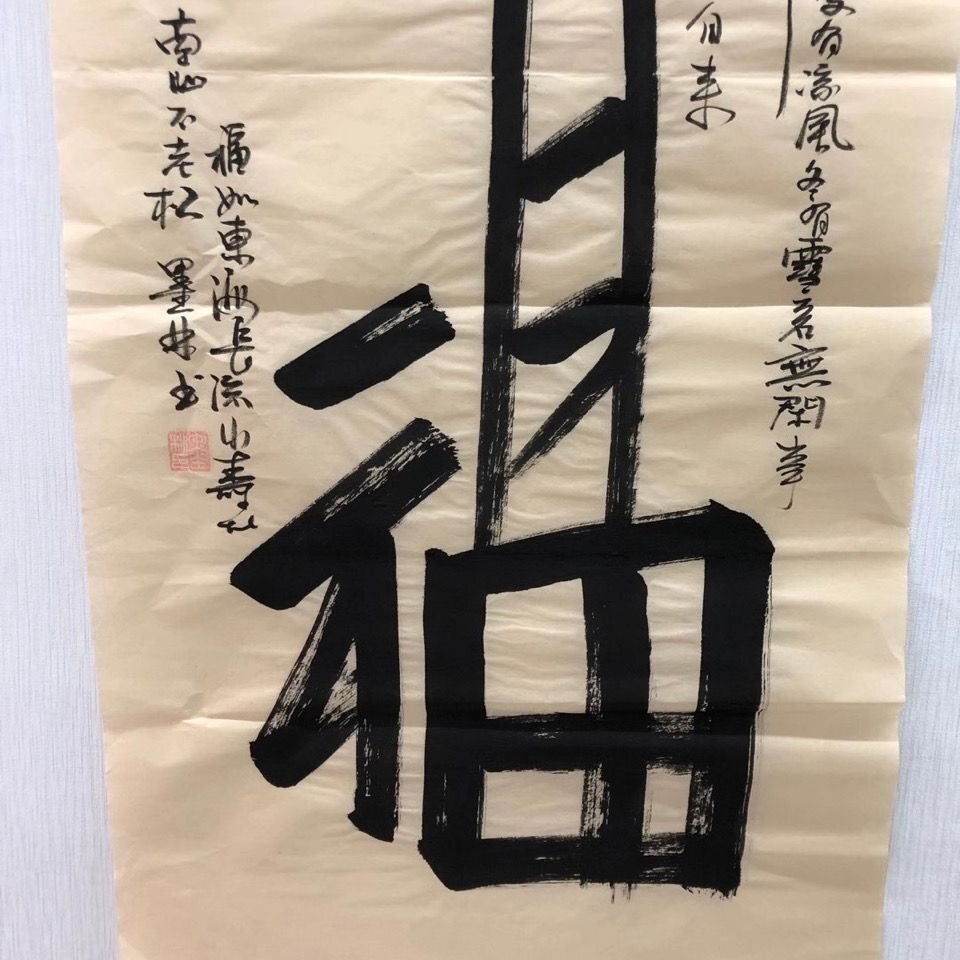 有凉風冬有雪若無閑事
自来
福
福如東海長流水壽比
南山不老松 墨林书